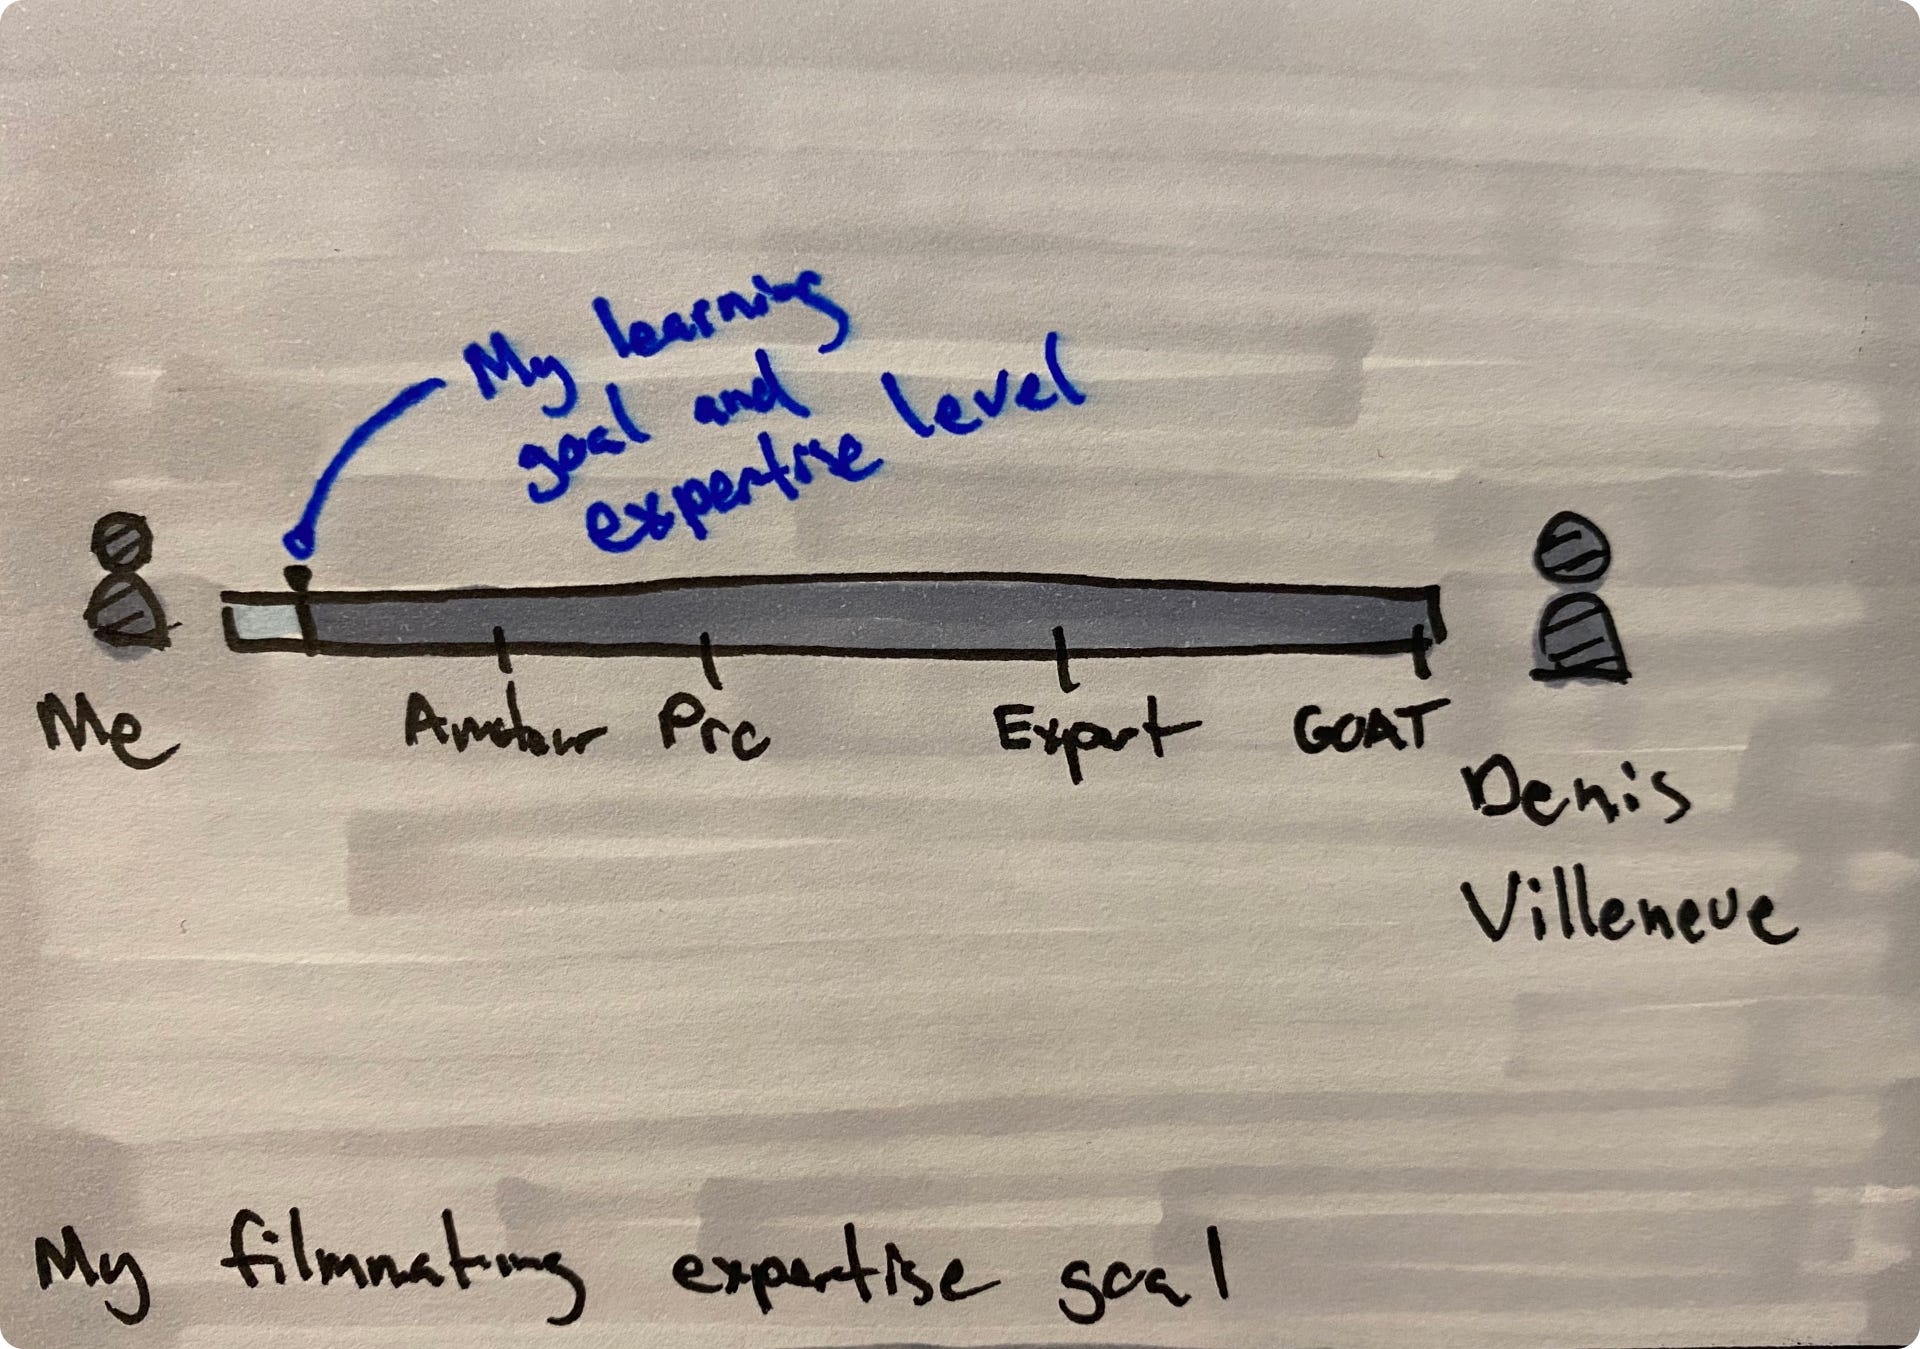 My learning
goal and
expertise level
Me
Amateur
Pro
Expert
GOAT
Denis
Villeneuve
My filmmaking expertise goal